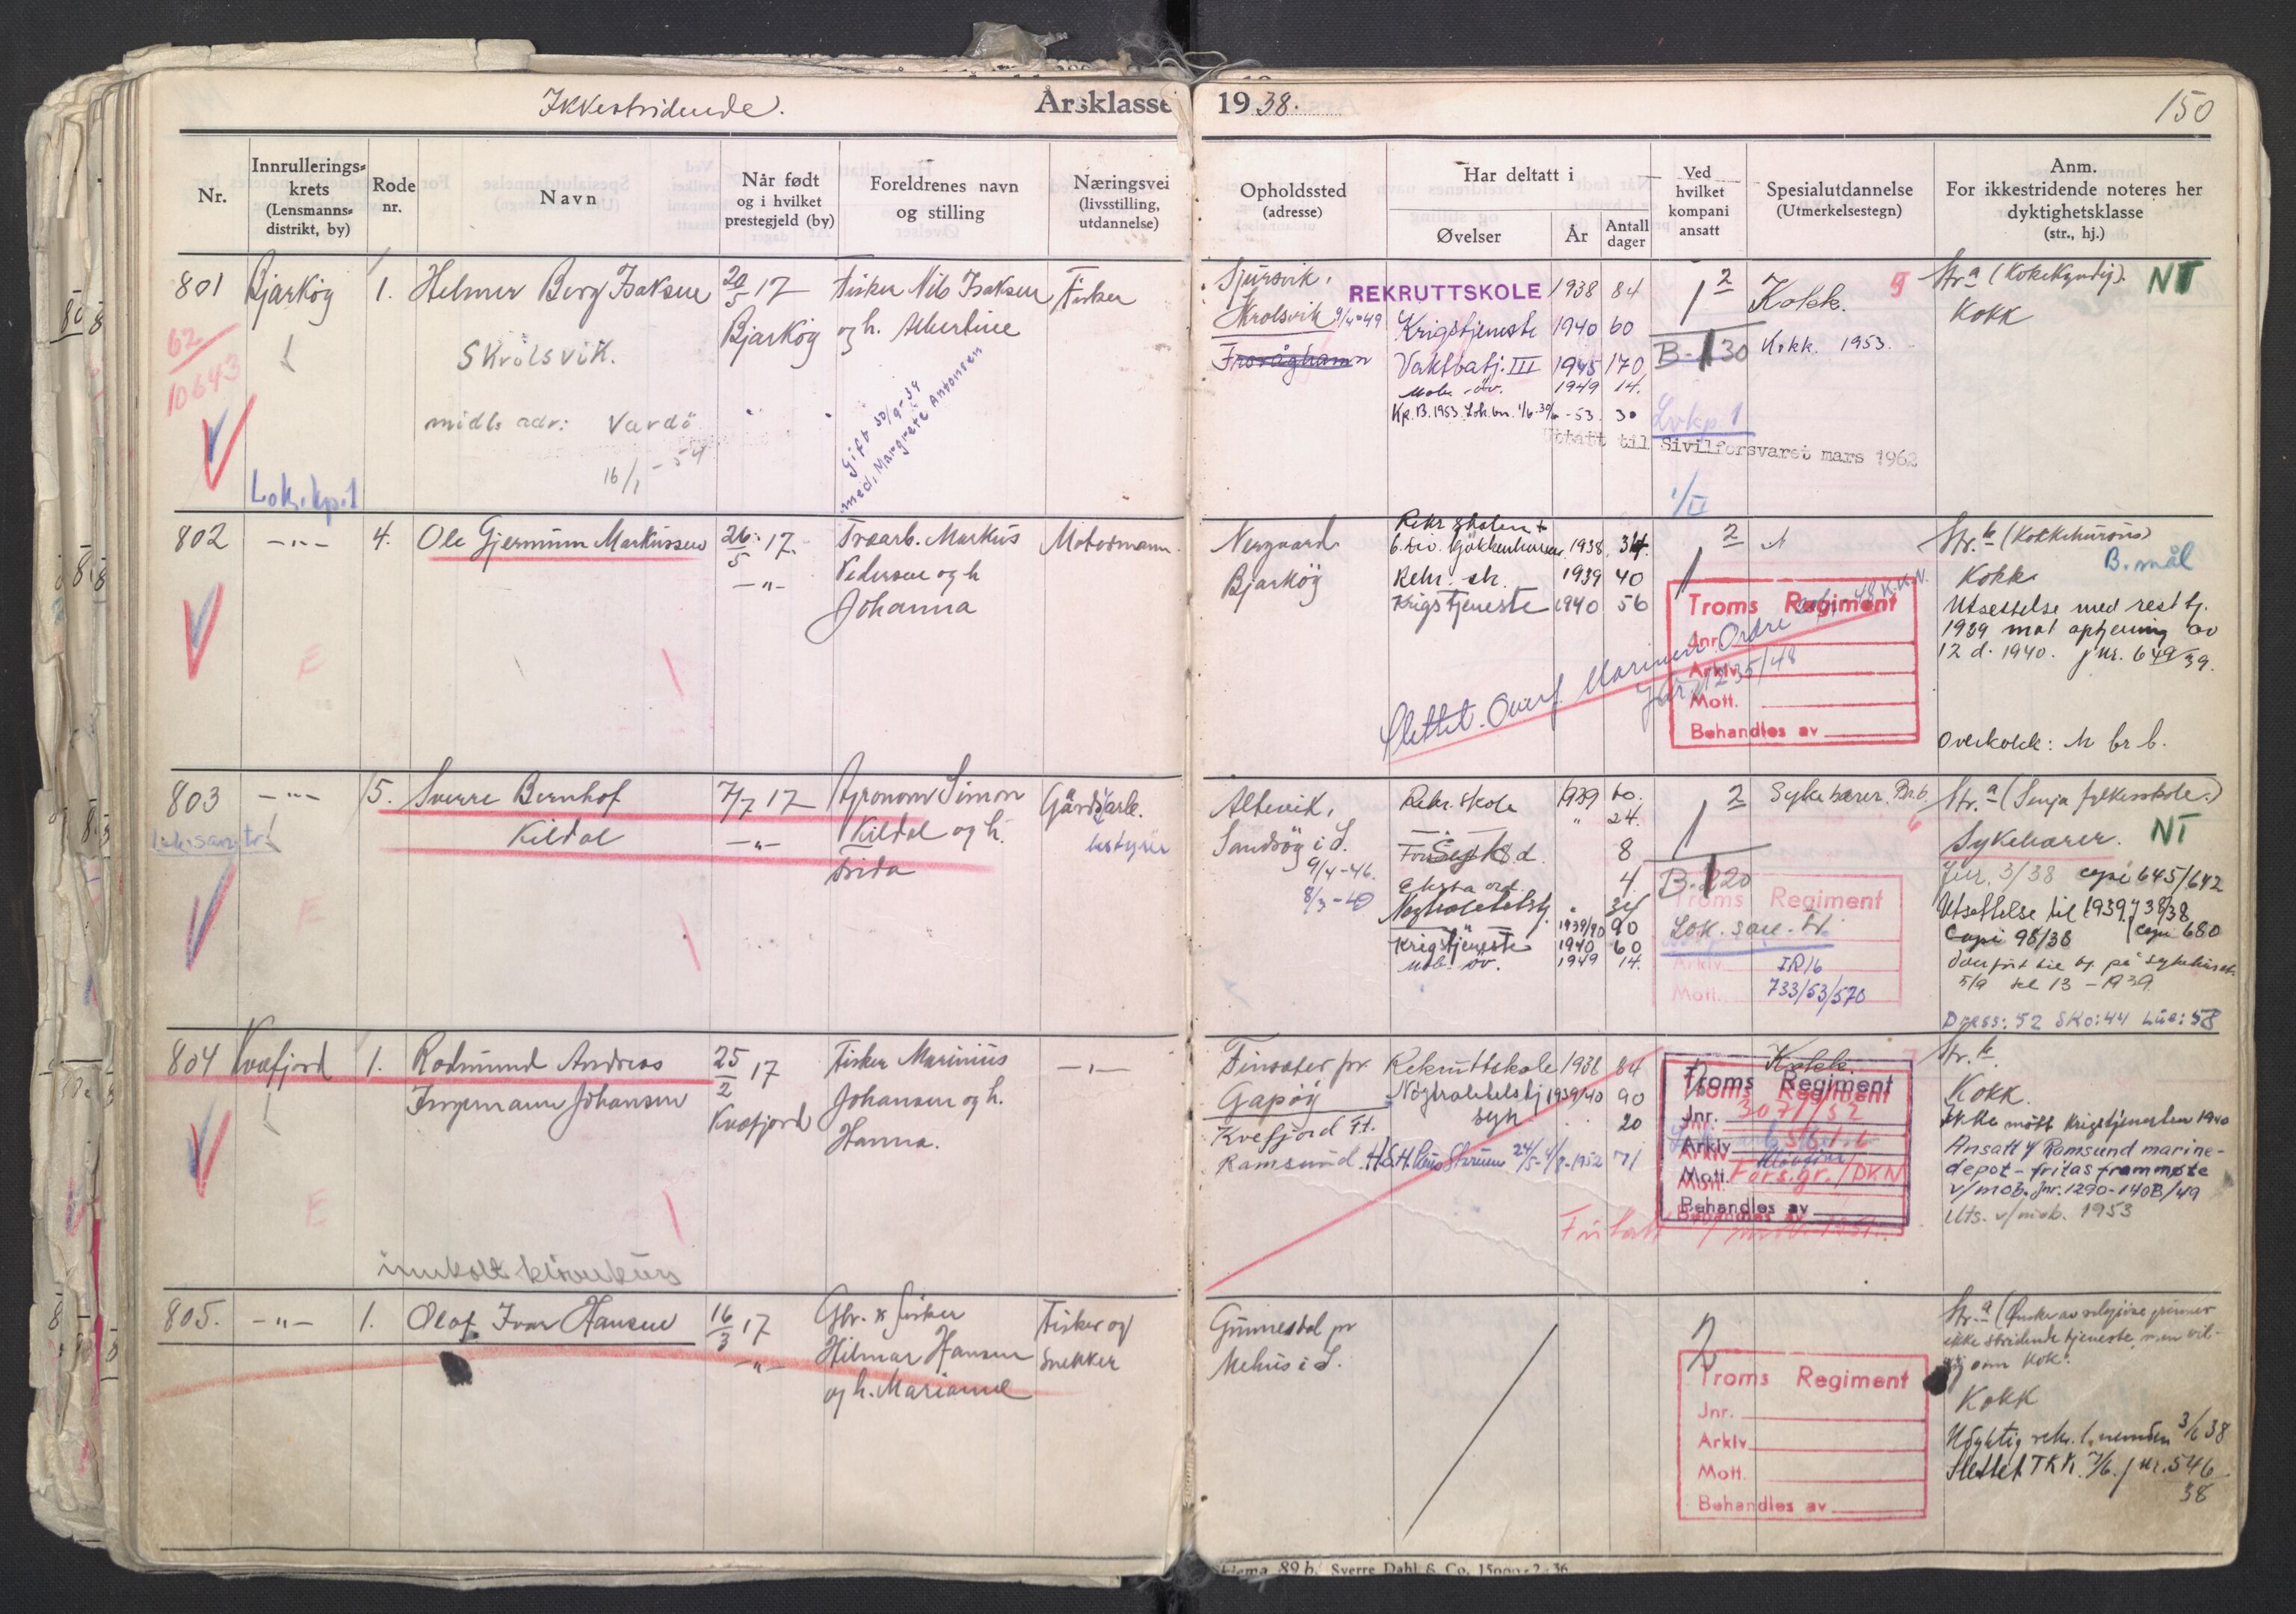 Ikkestridende.
Årsklasse 1938.
150
Nr.
Innrullerings-
krets
(Lensmanns-
distrikt, by)
Rode
nr.
Navn
Når født
og i hvilket
prestegjeld (by)
Foreldrenes navn
og stilling
Næringsvei
(livsstilling,
utdannelse)
Opholdssted
(adresse)
Har deltatt i
Øvelser
År
Antall
dager
Ved
hvilket
kompani
ansatt
Spesialutdannelse
(Utmerkelsestegn)
Anm.
For ikkestridende noteres her
dyktighetsklasse
(str., hj.)
801 Bjarkøy 1. Helmer Berg Isaksen 20/5 17 Fisker Nils Isaksen Fisker
Bjarkøy og h. Albertine
62
10643
Skrolsvik.
midl. adr: Vardö
16/1-54
Gift 30/9-39
med, Margrete Antonsen
Lok.kp.1
Sjursvik,
Skrolsvik 9/4-49
REKRUTTSKOLE 1938 84
Krigstjeneste 1940 60
Vaktbatj. III 1945 170
Mob. öv. 1949 14.
Kp.B.1953 Lok.bn. 1/6-30/6-53. 30
2
1
B-130
Lokp 1
Uttatt til Sivilforsvaret mars 1962
1/II
Kokk.
9
Kokk. 1953.
Str. a (Kokekyndig). NT
Kokk
802 -"- 4. Ole Gjermunn Markussen 26/5 17. Trearb. Markus Motormann.
-"- Pedersen og h.
Johanna
E
Nergaard
Bjarköy
Rekr.skolen +
6. div. Gökkenkurs 1938, 34.
Rekr. sk. 1939 40
Krigstjeneste 1940 56
2
1
Slettet. Overf. Marinen. Ordre
Jnr. 1235/48
Troms Regiment
Jnr.
Arkiv
Mott.
Behandles av
Str. b (Kokkekursus)
B. mål
Kokk
Utsettelse med rest tj.
1939 mot optjening av
12 d. 1940. jnr. 649/39.
Overkokk: M br b.
803 -"- 5. Sverre Bernhof 7/7 17 Agronom Simon Gårdsarb.
Kildal -"- Kildal og h. bestyrer
Frida
Lok.san.tr.
E
Altevik,
Sandsøy i S.
9/4-46.
8/3-40
Rekr. skole 1939 60.
" 24.
8
Ekstra ord. 4.
Nøytralitetstj. 34
1939/40 90
Krigstjeneste 1940 60
Mob. öv. 1949 14.
2
1
B-120
Lok. san. tr.
Sykebærer. Br.b.
6
Troms Regiment
Arkiv
Mott.
IR16
733/53/570
Str. a (Senja fylkesskole.)
Sykebærer. NT
Jnr. 3/38 copi 645/642
Utsettelse til 1939 j 38/38
Copi 98/38 copi 680
Overført til tj. på sykehuset.
5/9 kl 13 - 1939
Dress: 52 Sko: 44 Lue: 58
804 Kvæfjord 1. Rodmund Andreas 25/2 17 Fisker Marinius -"-
Ingemann Johansen Kvæfjord Johansen og h.
Hanna.
E
innkalt kløvekurs
Finsæter pr
Gapøy
Kvefjord Pt.
Ramsund.
Rekruttskole 1938 84
Nøytralitetstj 1939/40 90
syk 20
24/5-4/8-1952 71
Kokk.
Troms Regiment
Jnr. 3071/52
Arkiv 581.6
Mott. Fors.gr./DKN
Behandles av
Str. b
Kokk.
Ikke mött Krigstjenesten 1940
Ansatt v/ Ramsund marine-
depot - fritas frammøte
v/mob. jnr. 1290-140B/49
Uts. v/mob. 1953
805. -"- 1. Olaf Ivar Hansen 16/3 17 Gbr. & fisker Fisker og
-"- Hilmar Hansen snekker
og h. Marianne
Gunnesdal pr
Mehus i S.
2
Troms Regiment
Jnr.
Arkiv
Mott.
Behandles av
Str. a (Ønsker av religiøse grunner
ikke stridende tjeneste, men vil-
lig som kok.
Kokk
Udyktig rekr. l. nemden 3/6 38
Slettet TKK. 7/6. jnr. 546
38
Skjema 89 b. Sverre Dahl & Co. 15000-2-36